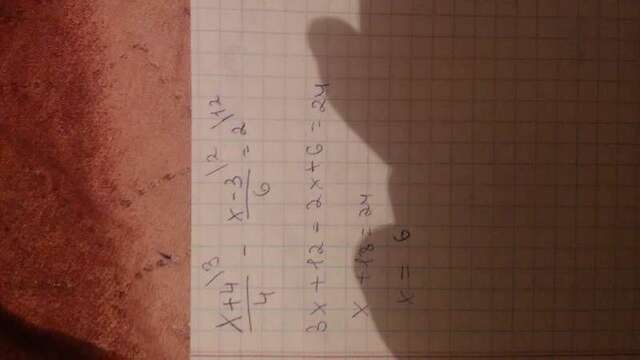 x+4/4 \3 - x-3/6 \2 = 2 \12
3x+12 = 2x+6 = 24
x +18 = 24
x = 6